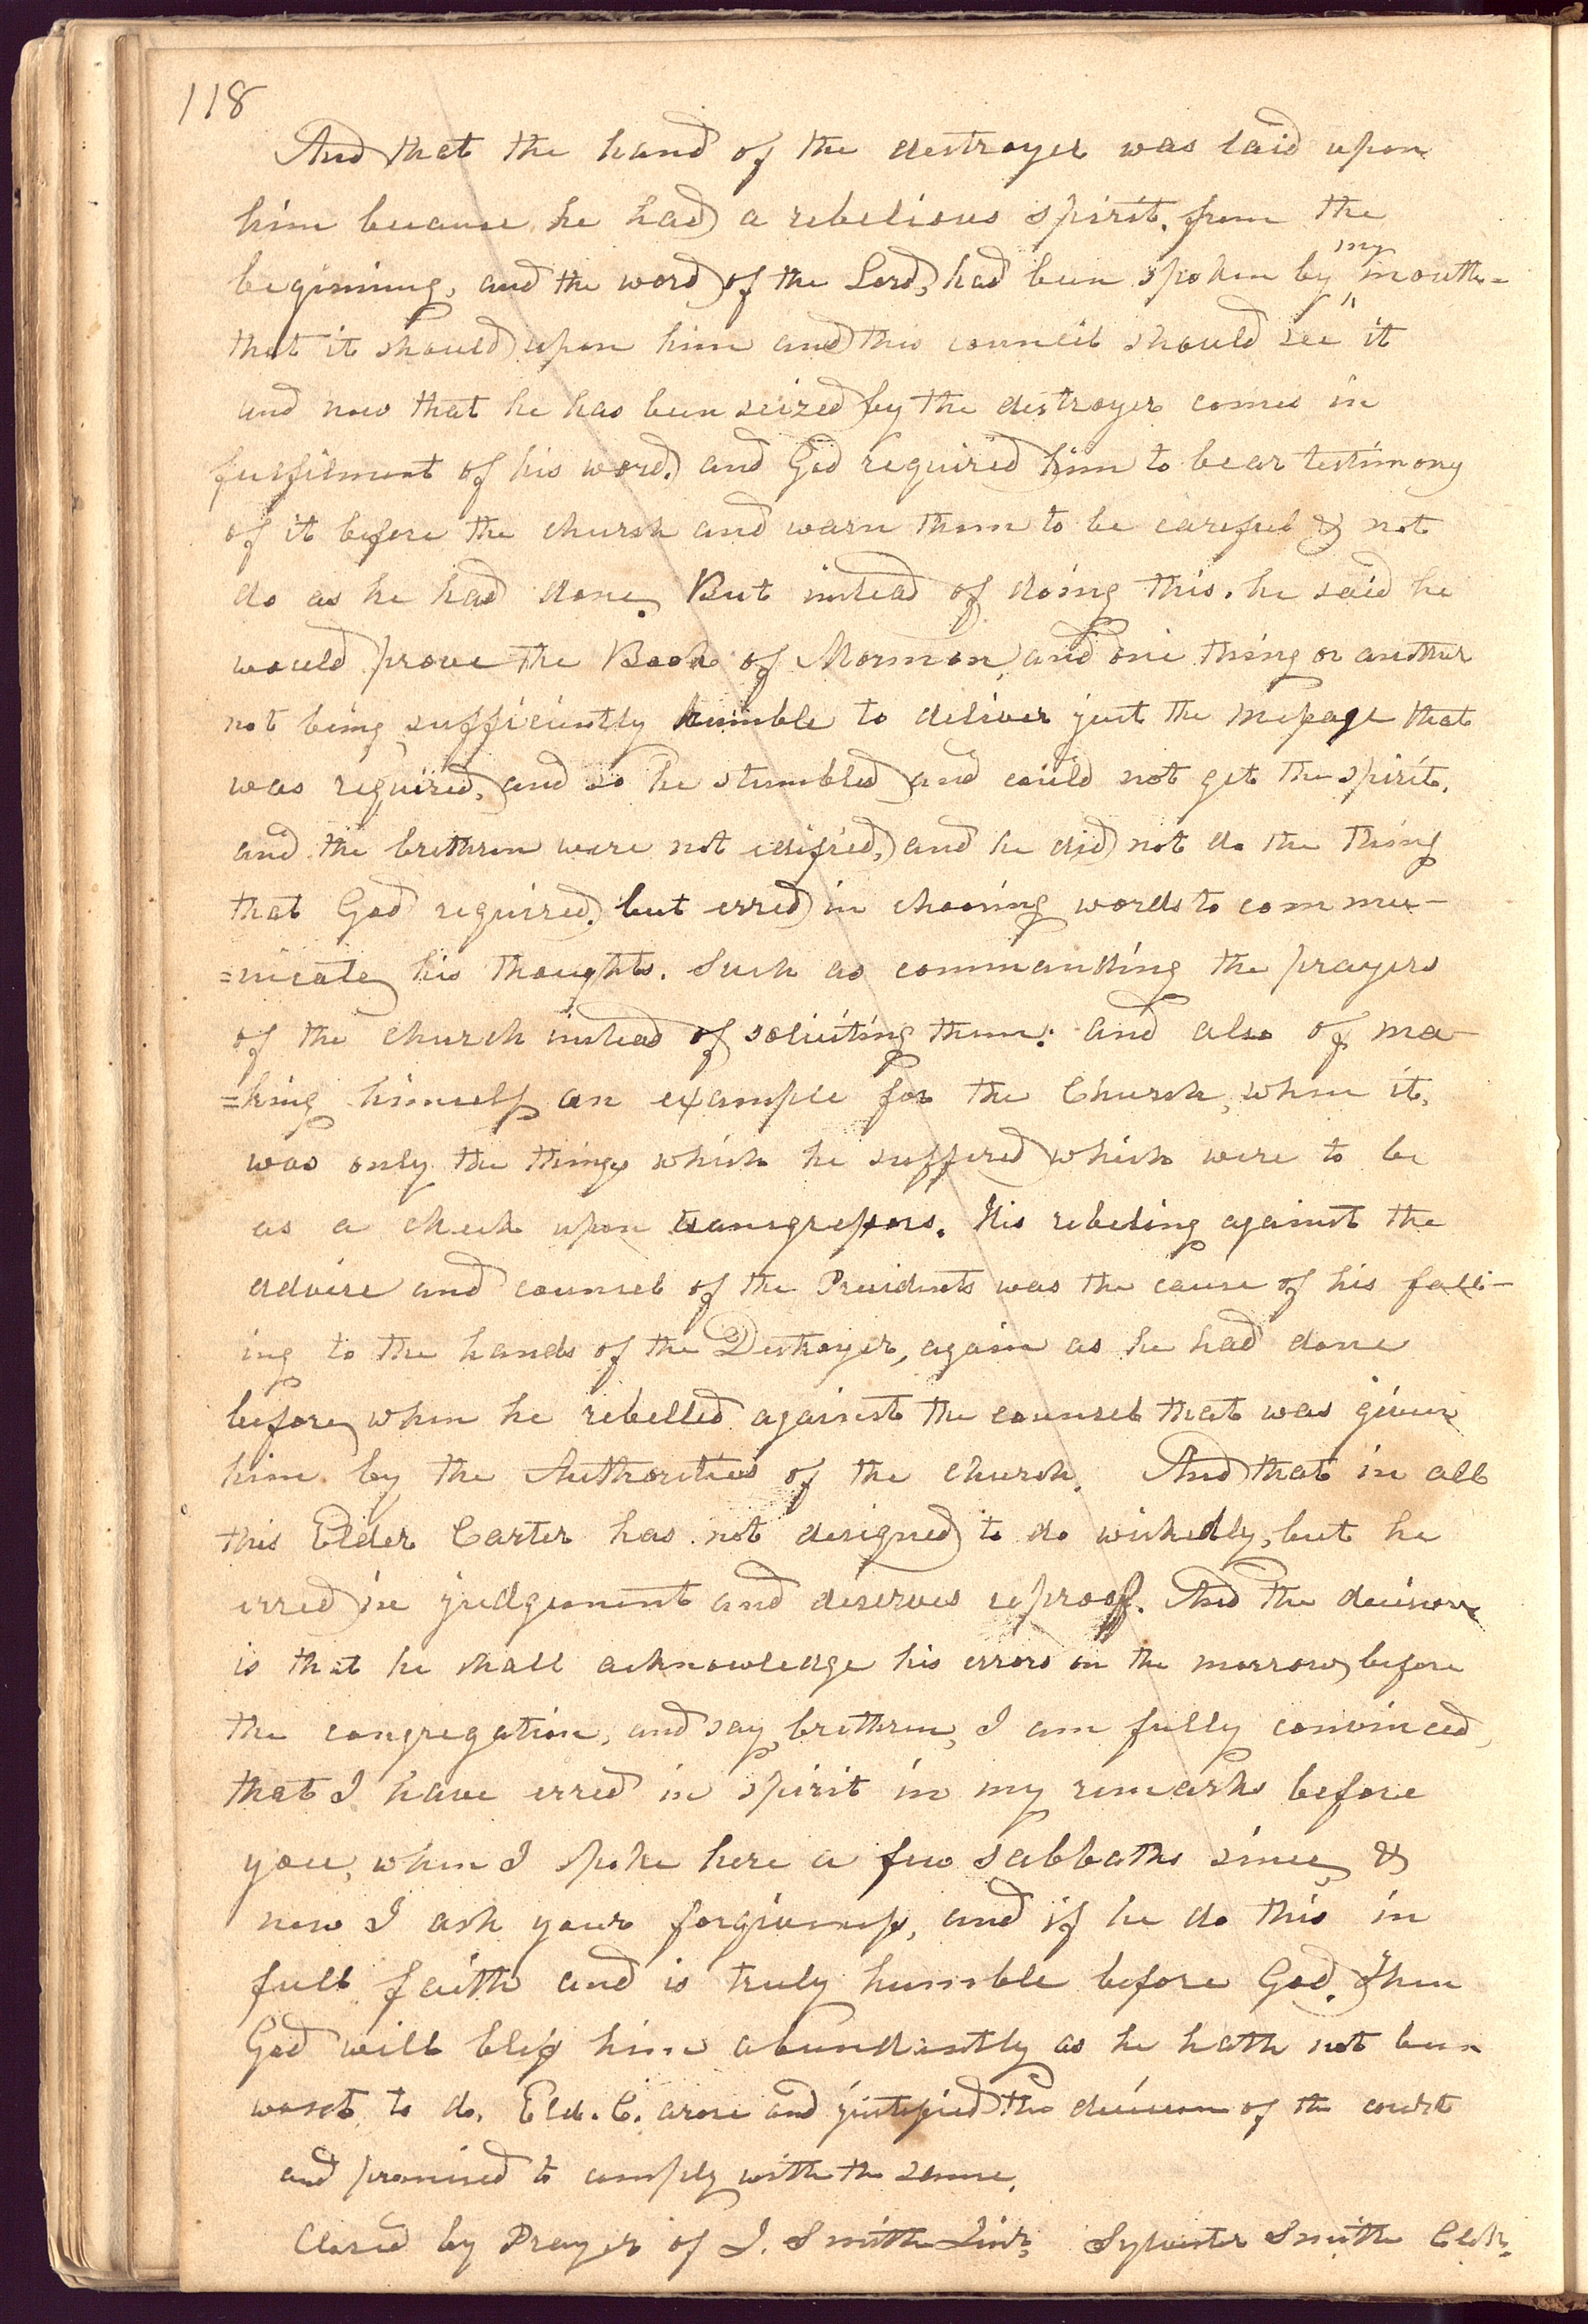 118
And that the hand of the destroyer was laid upon
him because he had a rebelious spirit. from the
begining, and the word of the Lord, had been spoken by my mouth=
that it should upon him and this council should see it
and now that he has been seized by the destroyer comes in
fulfilment of his word. and God required him to bear testimony
of it before the church and warn them to be careful & not
do as he had done. But instead of doing this. he said he
would prove the Book of Mormon, and one thing or another
not being sufficiently humble to deliver just the message that
was required, and so he stumbled and could not get the spirit.
and the brethren were not edified, and he did not do the thing
that God required. but erred in choosing words to commu-
=nicate his thoughts. Such as commanding the prayers
of the church instead of soliciting them: and also of ma-
=king himself an example for the Church, when it,
was only the things which he suffered which were to be
as a check upon transgressors. His rebeling against the
advice and counsel of the Presidents was the cause of his fall-
ing to the hands of the Destroyer, again as he had done
before when he rebelled against the counsel that was given
him by the Authorities of the church. And that in all
this Elder Carter has not designed to do wickedly, but he
erred in judgement and deserves reproof. And the decision
is that he shall acknowledge his errors on the morrow, before
the congregation, and say, brethren, I am fully convinced,
that I have erred in spirit in my remarks before
you, when I spoke here a few sabbaths since, &
now I ask your forgiveness, and if he do this in
full faith and is truly humble before God. Then
God will bless him abundantly as he hath not been
wont to do. Eld. C. arose and justified the decision of the court
and promised to comply with the same.
Closed by Prayer of J. Smith Sylvester Smith Clk.